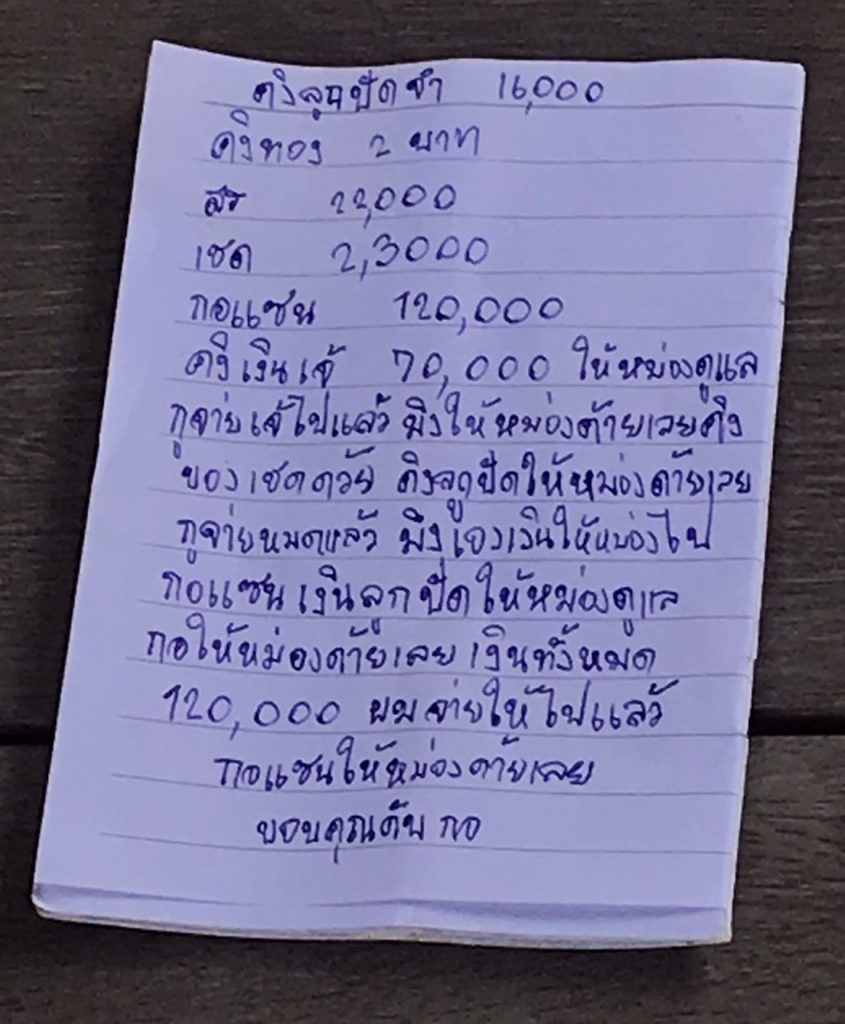 คงิลูกปัดชำ 16,000
คงิทอง 2 บาท
สร 22,000
เชด 2,3000
กอแซน 120,000
คงิเงินเจ้ 70,000 ให้หม่องดูแล
กูจ่ายเจ้ไปแล้ว มึงให้หม่องด้ายเลยคงิ
ของเชดดวัย คงิลูกปัดให้หม่องด้ายเลย
กูจ่ายหมดแล้ว มึงเองเงินให้หม่องไป
กอแซน เงินลูกปัดให้หม่องดูแล
กอให้หม่องด้ายเลย เงินทั้งหมด
120,000 ผมจ่ายให้ไปแล้ว
กอแซนให้หม่องด้ายเลย
ขอบคุณคับ กอ